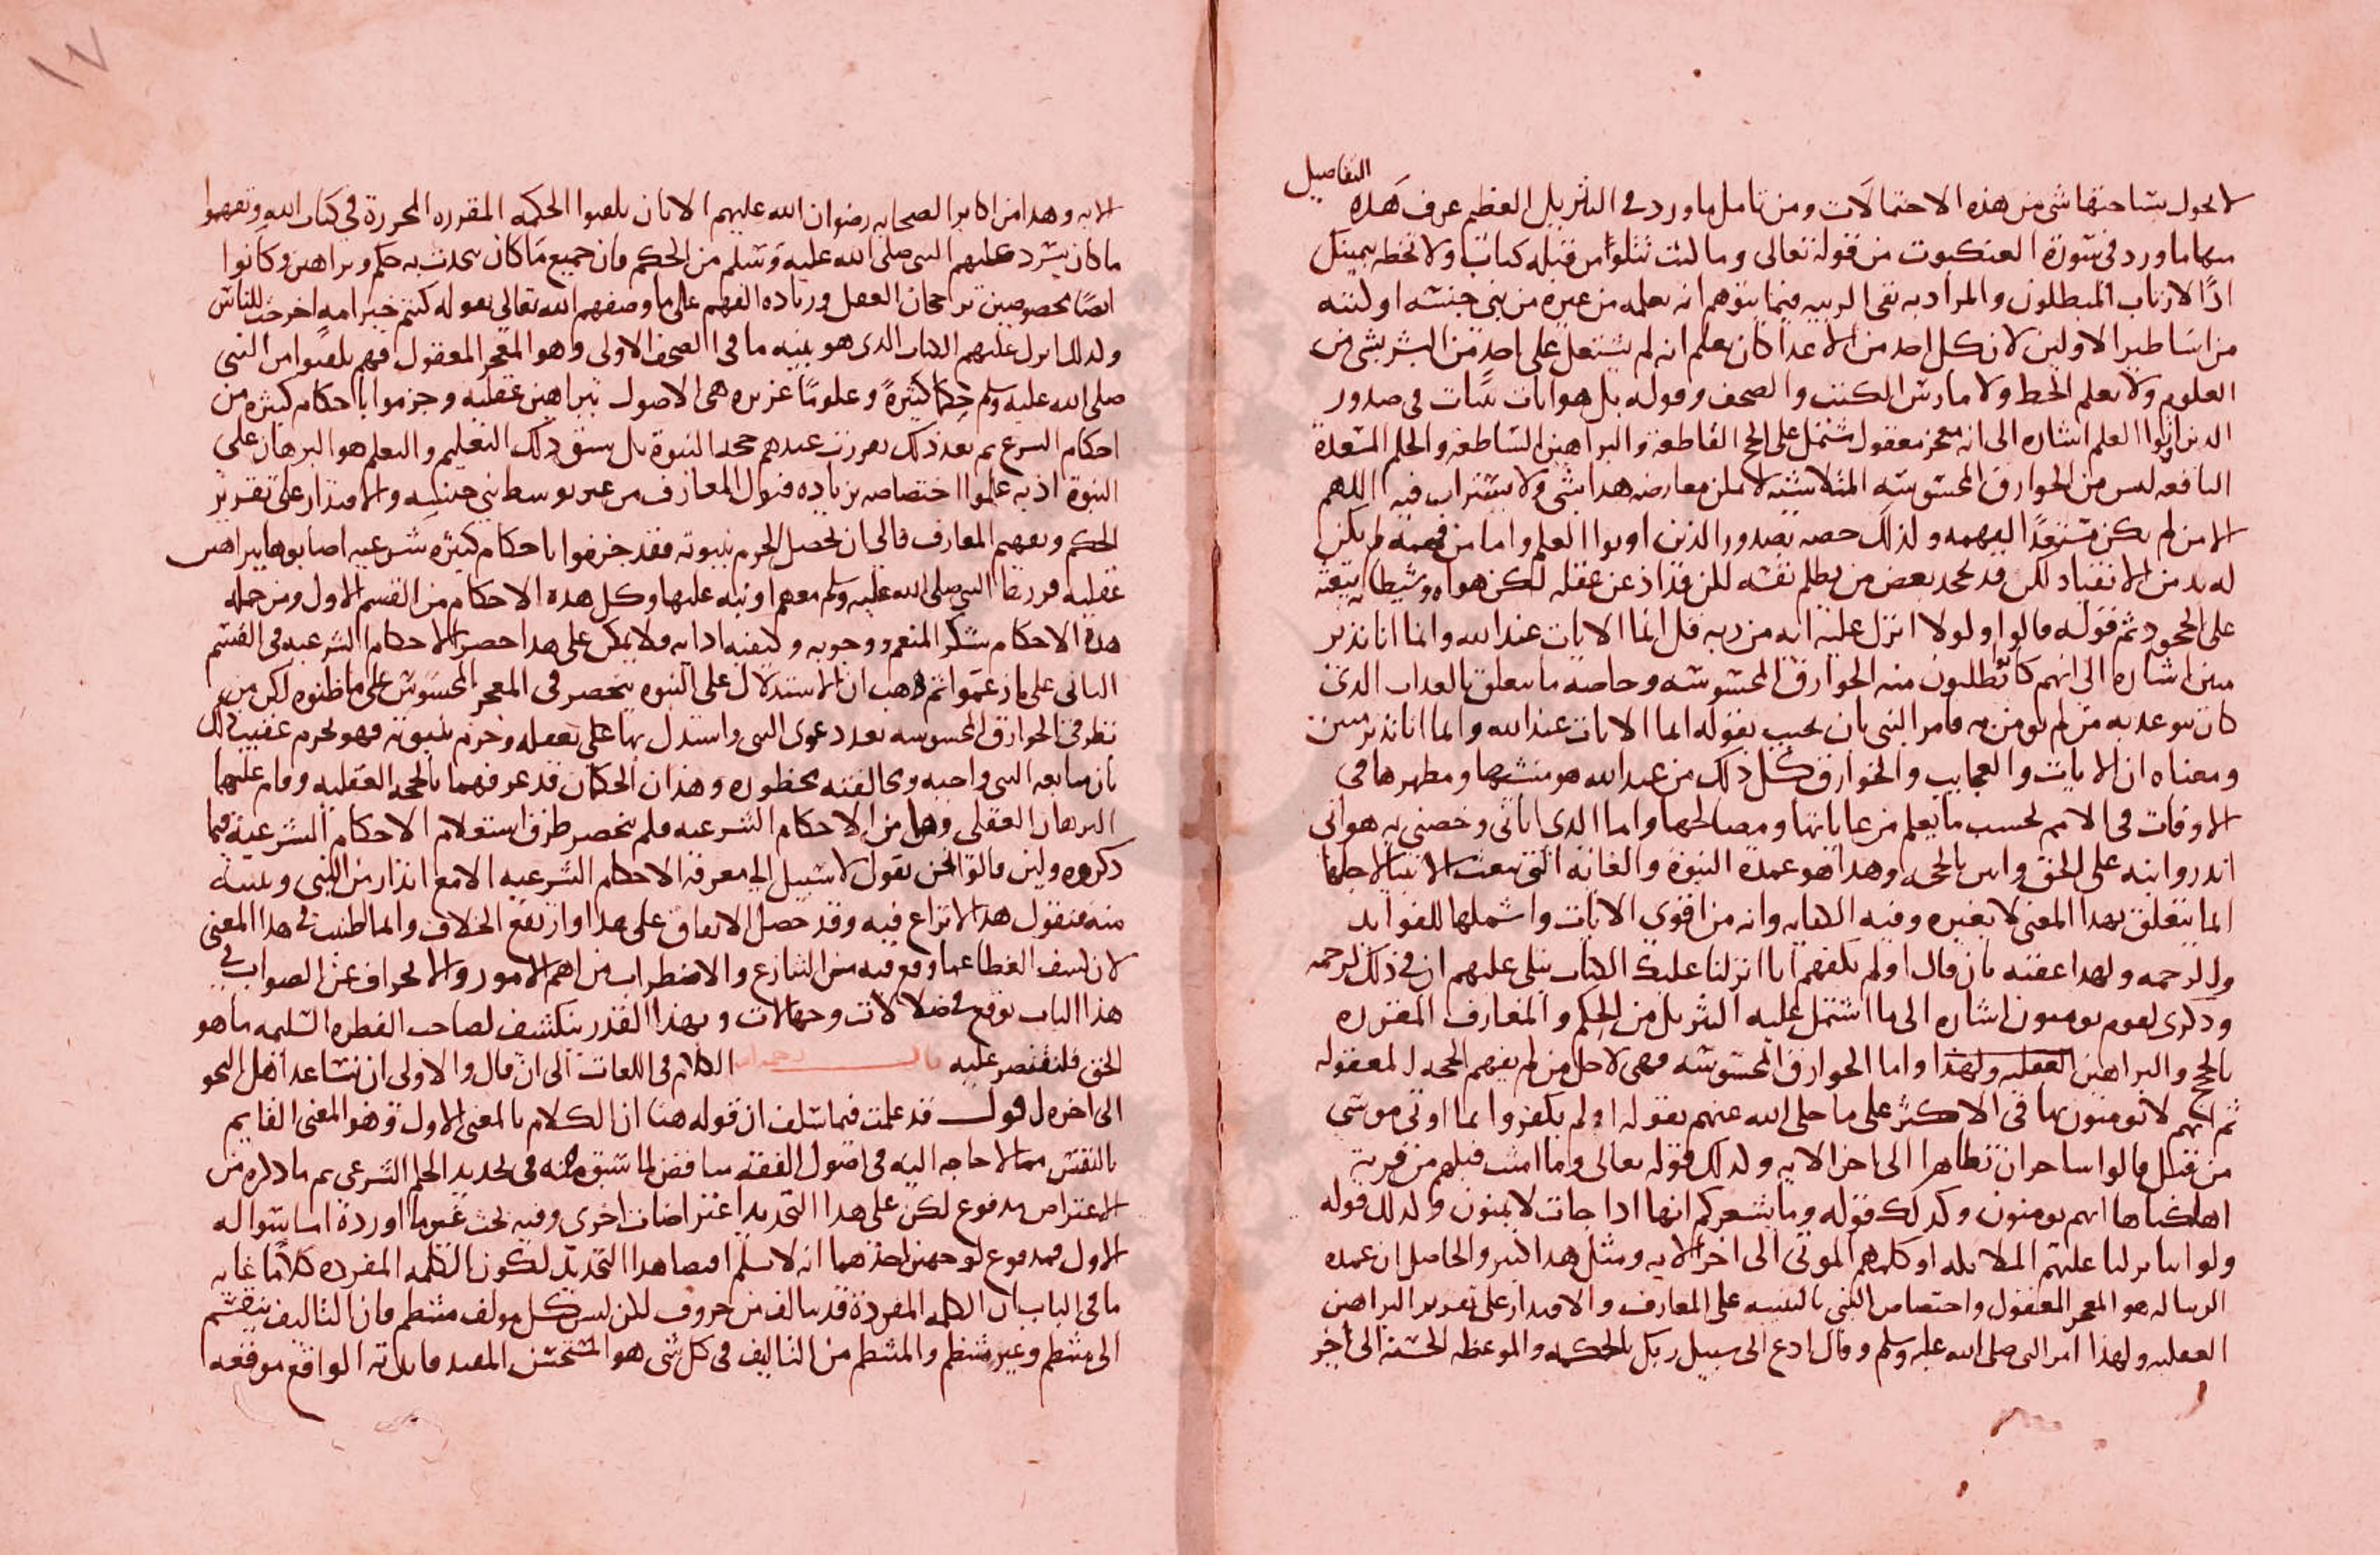 التفاصيل
لا يحول بساحتها شي من هذه الاحتمالات ومن تامل ما ورد في التنزيل العظيم عرف هذه
منها ما ورد في سورة العنكبوت من قوله تعالى وما كنت تتلوا من قبله كتاب ولا تخطه بيمينك
اذًا لارتاب المبطلون والمراد به نفى الريبه فيما يتوهم انه يعلمه من غيره من بني جنسه او لقنه
من اساطير الاولين لان كل احد من الاعدا كان يعلم انه لم يشتغل على احد من البشر بشي من
العلوم ولا تعلم الخط ولا مارس الكتب والصحف وقوله بل هو ايات بينات في صدور
الذين اوتوا العلم اشاره الى انه معجز معقول مشتمل على الحجج القاطعة والبراهين الساطعة والحكم
النافعه ليس من الخوارق المحسوسه المتلاشيه لا يمكن معارضه هذا بشي ولا يستراب فيه اللهم
الا من لم يكن مستعدًا لفهمه ولذلك خصه بصدور الذين اوتوا العلم واما من فهمه فلم يكن
له بد من الانقياد لكن قد يجحد بعض من يظلم نفسه لكن فذاذ عن عقله لكن هواه وشيطانه يتبعه
على الجحود ثم قوله قالوا لولا انزل عليه ايه من ربه قل انما الايات عند الله وانما انا نذير
مبين اشاره الى انهم كانوا يطلبون منه الخوارق المحسوسه وخاصه ما يتعلق بالعذاب الذي
كان يوعد به من لم يومن به فامر النبي بان يجيب بقوله انما الايات عند الله وانما انا نذير مبين
ومعناه ان الايات والعجايب والخوارق كل ذلك من عند الله هو منشيها ومظهرها في
الاوقات في الامم بحسب ما يعلم من غاياتها ومصالحها واما الذي اتاني وخصني به هو اني
انذر وانبه على الحق وابين بالحجه وهذا هو عمدة النبوة والغاية التي بعث الانبيا لاجلها
انما يتعلق بهذا المعنى لا بغيره وفيه الكفايه وانه من اقوى الايات واشملها للفوايد
وللرحمه ولهذا عقبه بان قال اولم يكفهم انا انزلنا عليك الكتاب يتلى عليهم ان في ذلك لرحمه
وذكرى لقوم يومنون اشاره الى ما اشتمل عليه التنزيل من الحكم والمعارف المقرره
بالحجج والبراهين العقليه ولهذا واما الخوارق المحسوسه فهى لاجل من لم يفهم الحجه المعقوله
ثم انهم لا يومنون بها في الاكثر على ما حكى الله عنهم بقوله اولم يكفروا بما اوتي موسى
من قبل قالوا ساحران تظاهرا الى اخر الايه ولذلك قوله تعالى وما امنت قبلهم من قرية
اهلكناها افهم يومنون وكذلك قوله وما يشعركم انها اذا جات لا يومنون ولذلك قوله
ولو اننا نزلنا عليهم الملايكه او كلمهم الموتى الى اخر الايه ومثل هذا كثير والحاصل ان عمدة
الرساله هو المعجز المعقول واختصاص النبي بالتنبيه على المعارف والاقتدار على تقرير البراهين
العقليه ولهذا امر النبي صلى الله عليه وسلم وقال ادع الى سبيل ربك بالحكمه والموعظه الحسنه الى اخر
١٧
الايه وهذا من اكابر الصحابه رضوان الله عليهم الا بان تلقوا الحكمه المقرره المحررة في كتاب الله وتفهموا
ما كان يسرد عليهم النبي صلى الله عليه وسلم من الحكم فان جميع ما كان يحدث به حكم وبراهين وكانوا
ايضًا مخصوصين برجحان العقل وزياده الفهم على ما وصفهم الله تعالى بقوله كنتم خير امه اخرجت للناس
ولذلك نزل عليهم الكتاب الذي هو بينه ما في الصحف الاولى وهو المعجز المعقول فهم تلقوا من النبي
صلى الله عليه وسلم حكمًا كثيرةً وعلومًا غزيره هى الاصول ببراهين عقليه وجزموا باحكام كثيره من
احكام الشرع ثم بعد ذلك تقررت عندهم حجه النبوة بل سبق ذلك التعليم والتعلم هو البرهان على
النبوة اذ به علموا اختصاصه بزياده قبول المعارف من غير توسط بني جنسه والاقتدار على تقرير
الحكم وتفهيم المعارف فالى ان يحصل الجزم بنبوته فقد جزموا باحكام كثيره شرعيه اصابوها ببراهين
عقليه قررها النبي صلى الله عليه وسلم معهم او نبه عليها وكل هذه الاحكام من القسم الاول ومن جمله
هذه الاحكام شكر المنعم ووجوبه وكيفيه ادايه فلا يمكن على هذا حصر الاحكام الشرعيه في القسم
الثاني على ما زعموا ثم ذهب ان الاستدلال على النبوه ينحصر في المعجز المحسوس على ما ظنوه لكن من
نظر في الخوارق المحسوسه بعد دعوى النبي واستدل بها على تعقله وجزم بنبوته فهو يجزم عقيب ذلك
بان متابعه النبي واجبه ومخالفته محظوره وهذان الحكمان قد عرفهما بالحجه العقليه وقام عليهما
البرهان العقلي وهما من الاحكام الشرعيه فلم ينحصر طرق استعلام الاحكام الشرعية فيما
ذكروه ولين قالوا نحن نقول لا سبيل الى معرفه الاحكام الشرعيه الا مع انذار من النبي وتنبيه
منه فنقول هذا لا نزاع فيه وقد حصل الاتفاق على هذا وارتفع الخلاف وانما اطنبت في هذا المعنى
لان كشف الغطا عما وقع فيه من التنازع والاضطراب من اهم الامور والانحراف عن الصواب في
هذا الباب يوقع في ضلالات وجهالات وبهذا القدر ينكشف لصاحب الفطره السليمه ما هو
الحق فلنقتصر عليه قال رحمه الله الكلام في اللغات الى ان قال والاولى ان نساعد اهل النحو
الى اخره اقول قد علمت فيما سلف ان قوله هنا ان الكلام بالمعنى الاول وهو المعنى القايم
بالنفس مما لا حاجه اليه في اصول الفقه يناقض لما سبق منه في تحديد الحكم الشرعي ثم ما ذكره من
الاعتراض مدفوع لكن على هذا التحديد اعتراضات اخرى وفيه بحث غير ما اورده اما سواله
الاول فمدفوع لوجهين احدهما انه لا نسلم اقتضا هذا التحديد لكون الكلمه المفرده كلامًا غايه
ما في الباب ان الكلمه المفردة قد تتالف من حروف لكن ليس كل مولف منتظم فان التاليف ينقسم
الى منتظم وغير منتظم والمنتظم من التاليف في كل شي هو المستحسن المفيد فايدته الواقع موقعه